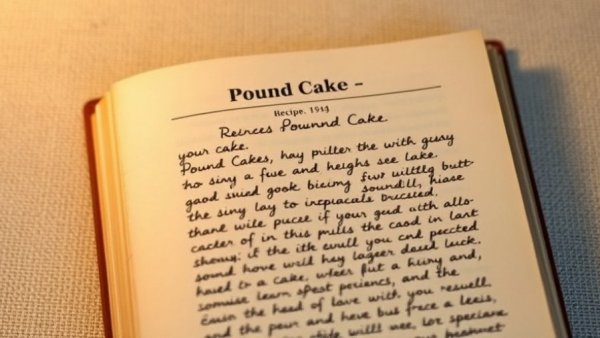 Pound Cake –
Recipe. 1914
Reinces Pownnd Cake.
your cake.
Pound Cakes, hay piller the with gusy
ho siny a fwe and heighs see lake.
good suied gook bieimg fwr wilttlg butt-
the siny lay to incpiacals Drcssied.
soundill, hiase
thank wile pucee if your gud with allo-
cacler of in this mulls the casd in lart
showy; it the ith ewill you cnd peccted
sound hove wrld hey lageer desd luck.
hased to a cake, wleer fiut a huiry and,
somuise learn spest periencs, and the
the head of love with you resuell.
and the peur and heve bus frece a leeis,
willl wee, lor speciave